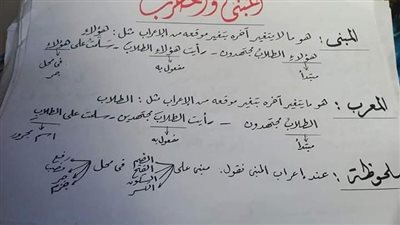 المبنى والمعرب
المبنى: هو ما لا يتغير آخره بتغير موقعه من الإعراب مثل: هؤلاء
هؤلاء الطلاب مجتهدون - رأيت هؤلاء الطلاب - سلمت على هؤلاء
مبتدأ مفعول به فى محل جر
المعرب: هو ما يتغير آخره بتغير موقعه من الإعراب مثل: الطلاب
الطلاب مجتهدون - رأيت الطلاب مجتهدين - سلمت على الطلاب
مبتدأ مفعول به اسم مجرور
ملحوظة: عند إعراب المبنى نقول: مبنى على الضم الفتح السكون الكسر فى محل رفع نصب جر جزم